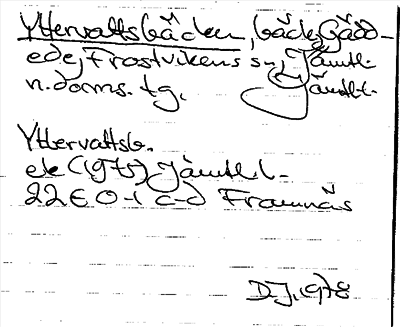 Yttervattsbäcken, bäck, Gädd-
ede, Frostvikens sn, Jämtl.
n. doms. tg. Jämtl.
Yttervattsb.
ek (1975) Jämtl. l-
22E 0-1 c-d Framnäs
D.J. 1978